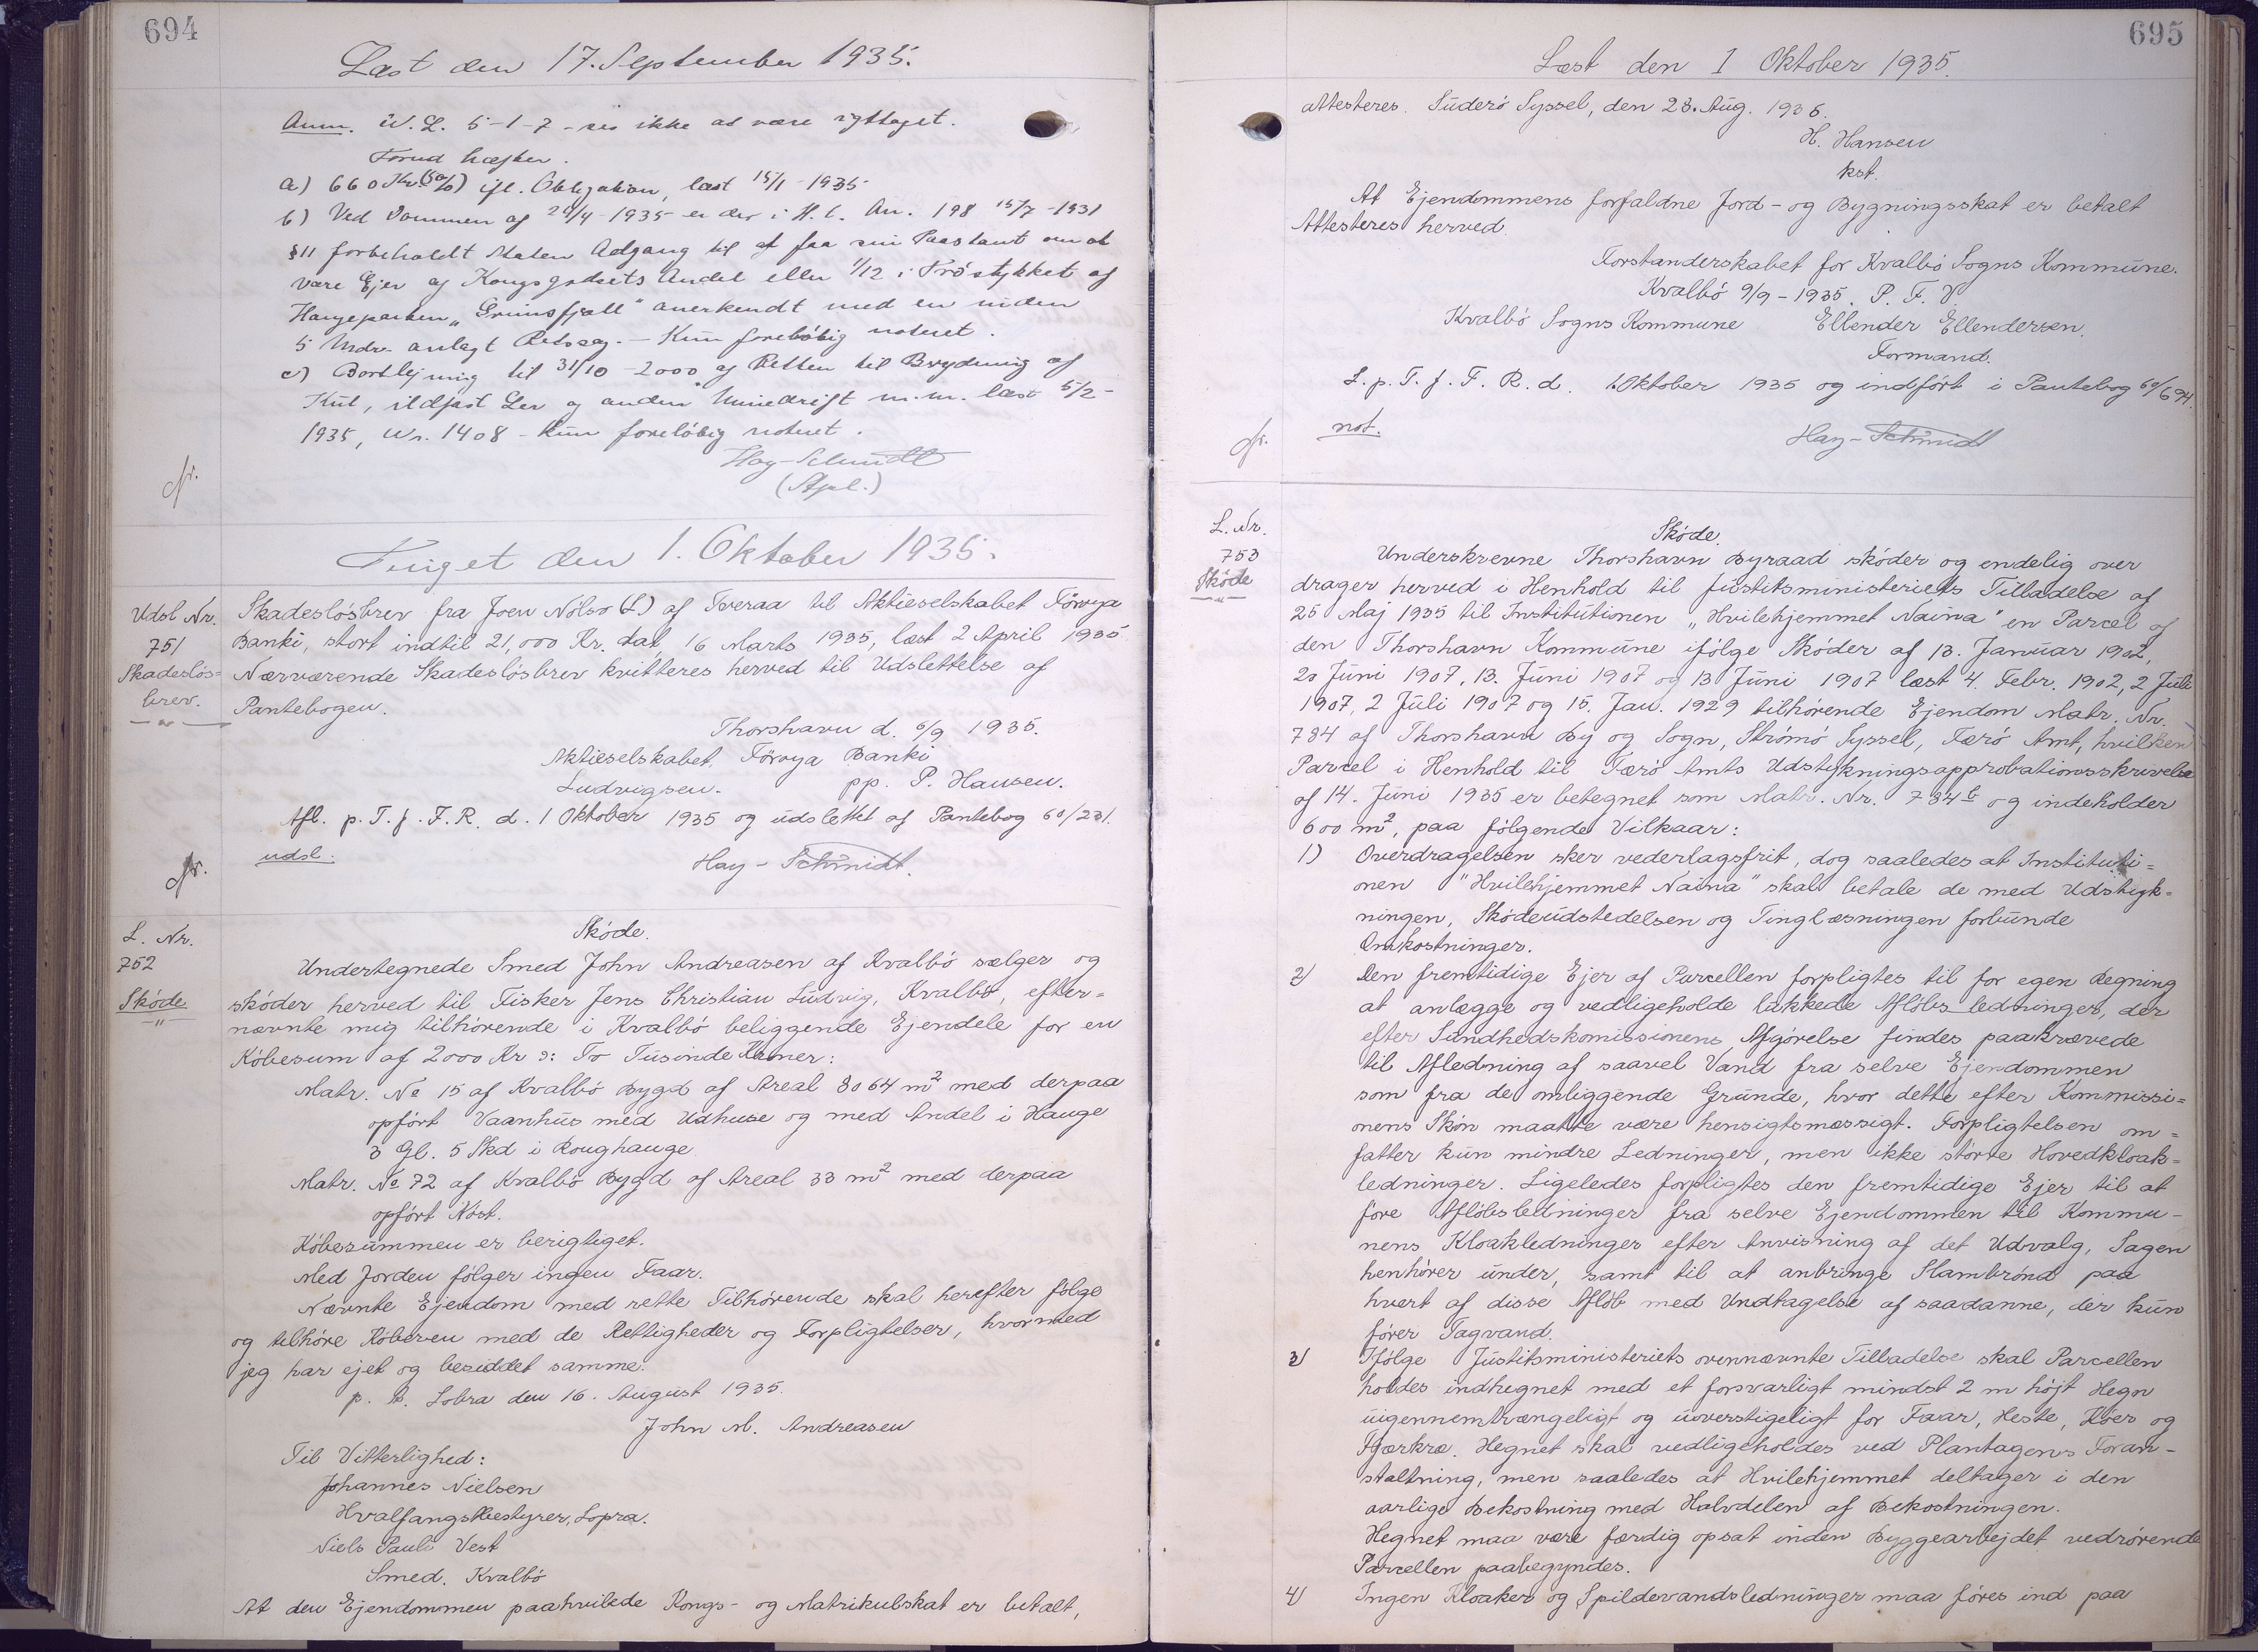 694
Læst den 17. September 1935.
Anm. W. L. 5-1-7 - ses ikke at være ryttaget.
Forud hæfter.
a) 660 Kr. (5%) ifl. Obligation, læst 15/1 - 1935
b) Ved Dommen af 20/4 - 1935 er der i H. t. An. 198 15/7 - 1931
§ 11 forbeholdt Staten Adgang til at faa sin Paastant om at
være Ejer af Kongsgodsets Andel eller 1/12 i Tróstykket af
Haugeparten "Grimsfjall" anerkendt med en inden
5 Mdr. anlagt Retssag. - Kun foreløbig noteret.
c) Bortlejning til 31/10 - 2000 af Retten til Brydning af
Kul, ildfast Ler og anden Minedrift m.m. læst 5/2 -
1935, Nr. 1408 - Kun foreløbig noteret.
Hay-Schmidt
Tinget den 1. Oktober 1935.
Udsl Nr.
751
Skadesløs=
brev.
Skadesløsbrev fra Joen Nolsø (L.) af Tveraa til Aktieselskabet Förvya
Banki, stort indtil 21,000 Kr. dat. 16 Marts 1935, læst 2 April 1935
Nærværende Skadesløsbrev kvitteres herved til Udslettelse af
Pantebogen.
Thorshavn d. 6/9 1935.
Aktieselskabet Förvya Banki
Ludvigsen. pp. P. Hansen.
Afl. p. T. f. F. R. d. 1 Oktober 1935 og udslettet af Pantebog 60/231.
udsl. Hay - Schmidt.
L. Nr.
752
Skóde
Skóde.
Undertegnede Smed John Andreasen af Kvalbó sælger og
skóder herved til Fisker Jens Christian Ludvig, Kvalbó, efter=
nævnte mig tilhórende i Kvalbó beliggende Ejendele for en
Kóbesum af 2000 Kr ɔ: To Tusinde Kroner:
Matr. No 15 af Kvalbó Bygd af Areal 8064 m2 med derpaa
opfórt Vaanhus med Udhuse og med Andel i Hauge
3 Gl. 5 Skd i Roughauge
Matr. No 72 af Kvalbó Bygd af Areal 33 m2 med derpaa
opfórt Nóst.
Kóbesummen er berigtiget.
Med Jorden fólger ingen Faar.
Nævnte Ejendom med rette Tilhórende skal herefter fólge
og tilhóre Kóberen med de Rettigheder og Forpligtelser, hvormed
jeg har ejet og besiddet samme.
p. t. Lobra den 16. August 1935.
John M. Andreasen
Til Vitterlighed:
Johannes Nielsen
Hvalfangstbestyrer, Lopra.
Niels Pauli Vest
Smed. Kvalbó
At den Ejendommen paahvilede Kongs- og Matrikulskat er betalt,
695
Læst den 1 Oktober 1935.
attesteres. Súderó Syssel, den 28. Aug. 1935.
H. Hansen
kst.
At Ejendommens forfaldne Jord- og Bygningsskat er betalt
Attesteres herved.
Forstanderskabet for Kvalbó Sogns Kommune.
Kvalbó 9/9 - 1935. P. F. V.
Kvalbó Sogns Kommune Ellender Ellendersen.
Formand.
L. p. T. f. F. R. d. 1. Oktober 1935 og indfórt i Pantebog 60/694.
not. Hay - Schmidt
L. Nr.
753
Skóde
Skóde.
Underskrevne Thorshavn Byraad skóder og endelig over
drager herved i Henhold til Justitsministeriets Tilladelse af
25 Maj 1935 til Institutionen "Hvilehjemmet Naina" en Parcel af
den Thorshavn Kommune ifólge Skóder af 13. Januar 1902,
20 Juni 1907, 13. Juni 1907 og 13 Juni 1907 læst 4. Febr. 1902, 2 Juli
1907, 2 Juli 1907 og 15. Jan. 1929 tilhórende Ejendom Matr. Nr.
784 af Thorshavn By og Sogn, Strómó Syssel, Færó Amt, hvilken
Parcel i Henhold til Færó Amts Udstykningsapprobationsskrivelse
af 14. Juni 1935 er betegnet som Matr. Nr. 784 b og indeholder
600 m2, paa fólgende Vilkaar:
1) Overdragelsen sker vederlagsfrit, dog saaledes at Instituti=
onen "Hvilehjemmet Naina" skal betale de med Udstyk=
ningen, Skódeudstedelsen og Tinglæsningen forbunde
Omkostninger.
2) Den fremtidige Ejer af Parcellen forpligtes til for egen Regning
at anlægge og vedligeholde lukkede Aflóbs ledninger, der
efter Sundhedskomissionens Afgórelse findes paakrævede
til Afledning af saavel Vand fra selve Ejendommen
som fra de omliggende Grunde, hvor dette efter Kommissi=
onens Skón maatte være hensigtsmæssigt. Forpligtelsen om=
fatter kun mindre Ledninger, men ikke stórre Hovedkloak=
ledninger. Ligeledes forpligtes den fremtidige Ejer til at
fóre Aflóbsledninger fra selve Ejendommen til Kommu-
nens Kloakledninger efter Anvisning af det Udvalg, Sagen
henhórer under, samt til at anbringe Slambrónd paa
hvert af disse Aflób med Undtagelse af saadanne, der kun
fórer Tagvand.
3) Ifólge Justitsministeriets ovennævnte Tilladelse skal Parcellen
holdes indhegnet med et forsvarligt mindst 2 m hójt Hegn
uigennemtrængeligt og uoverstigeligt for Faar, Heste, Kóer og
Fjærkræ. Hegnet skal vedligeholdes ved Plantagens Foran-
staltning, men saaledes at Hvilehjemmet deltager i den
aarlige Bekostning med Halvdelen af Bekostningen.
Hegnet maa være færdig opsat inden Byggearbejdet vedrórende
Parcellen paabegyndes.
4) Ingen Kloaker og Spildevandsledninger maa fóres ind paa